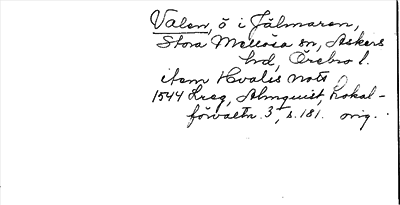 Valen, ö i Jälmaren,
Stora Mellösa sn, Askers
hd, Örebro l.
item Hvalis nott
1544 Lreg, Almquist, Lokal-
förvaltn. 3, s. 181. orig.